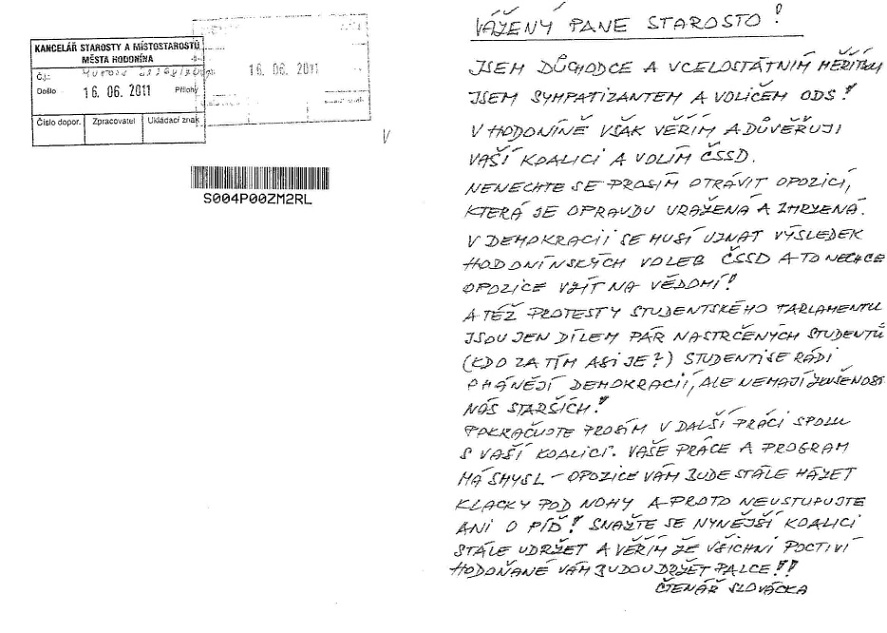 KANCELÁŘ STAROSTY A MÍSTOSTAROSTŮ
MĚSTA HODONÍNA
Č.j.:
Došlo 16. 06. 2011 Přílohy
Číslo dopor. Zpracovatel Ukládací znak
16. 06. 2011
S004P00ZM2RL
VÁŽENÝ PANE STAROSTO!
JSEM DŮCHODCE A VCELOSTÁTNÍM MĚŘÍTKU
JSEM SYMPATIZANTEM A VOLIČEM ODS!
V HODONÍNĚ VŠAK VĚŘÍM A DŮVĚŘUJI
VAŠÍ KOALICI A VOLÍM ČSSD.
NENECHTE SE PROSÍM OTRÁVIT OPOZICÍ,
KTERÁ JE OPRAVDU URAŽENÁ A ZHRZENÁ.
V DEMOKRACII SE MUSÍ UZNAT VÝSLEDEK
HODONÍNSKÝCH VOLEB ČSSD A TO NECHCE
OPOZICE VZÍT NA VĚDOMÍ!
A TÉŽ PROTESTY STUDENTSKÉHO PARLAMENTU
JSOU JEN DÍLEM PÁR NASTRČENÝCH STUDENTŮ
(KDO ZA TÍM ASI JE?) STUDENTI SE RÁDI
OHÁNĚJÍ DEMOKRACIÍ, ALE NEMAJÍ ZKUŠENOST
NÁS STARŠÍCH!
POKRAČUJTE PROSÍM V DALŠÍ PRÁCI SPOLU
S VAŠÍ KOALICÍ. VAŠE PRÁCE A PROGRAM
MÁ SMYSL - OPOZICE VÁM BUDE STÁLE HÁZET
KLACKY POD NOHY A PROTO NEUSTUPUJTE
ANI O PÍĎ! SNAŽTE SE NYNĚJŠÍ KOALICI
STÁLE UDRŽET A VĚŘÍM ŽE VŠICHNI POCTIVÍ
HODOŇANÉ VÁM BUDOU DRŽET PALCE!!
ČTENÁŘ SLOVÁCKA